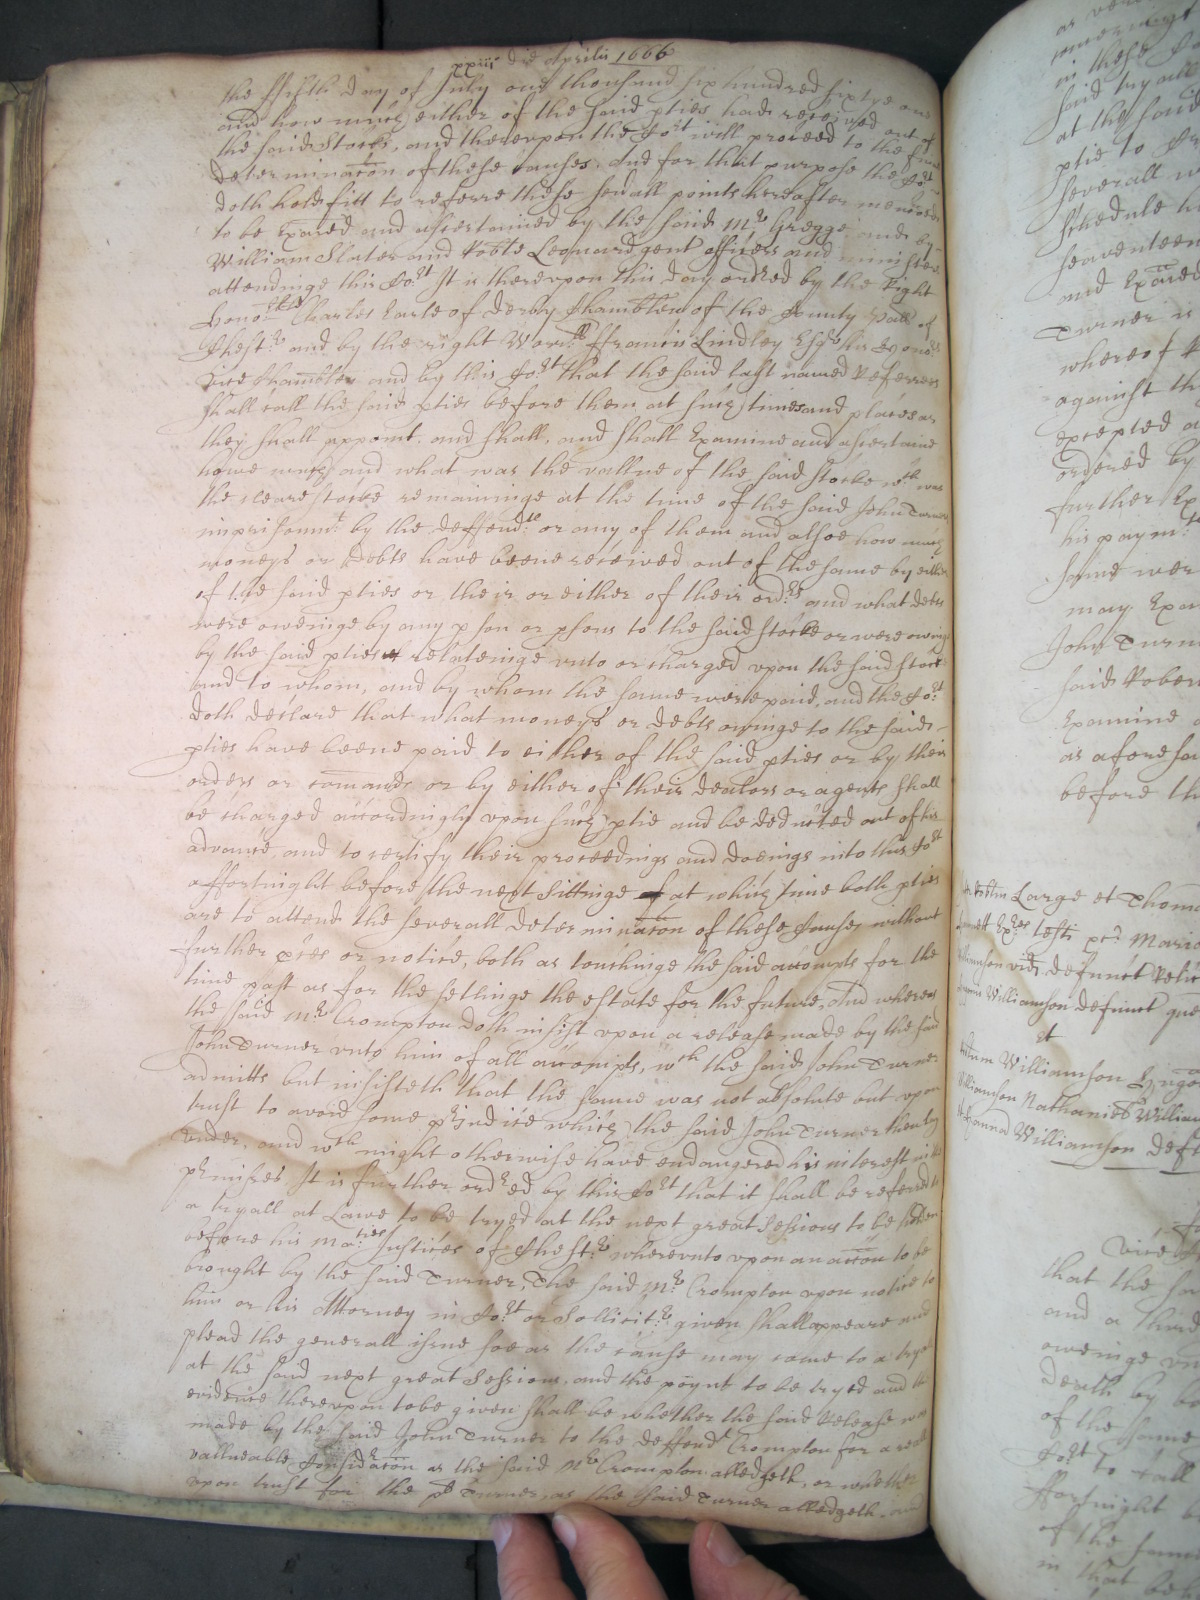 xxiii die Aprilis 1666
the ffifth day of July one thousand six hundred sixtye one
and how much either of the said pties had received out of
the said Stocke, and therevpon the Cort will proceed to the finall
determinacon of these causes. And for that purpose the Cort
doth hold fitt to referre these seuall points hereafter menconed
to be Exaied and ascertained by the said Mr Gregge and by
William Slater and Robte Leonard gent officers and ministers
attendinge this Cort It is therevpon this day ordred by the Right
Honoble Charles Earle of Derby Chamblen of the County Pall of
Chestr and by the right Worll ffrancis Lindley Esqr his honors
Vice Chamblen and by this Cort that the said last named Referrees
shall call the said pties before them at such times and places as
they shall appoint, and shall, and shall Examine and ascertaine
howe much and what was the vallue of the said stocke wch was
the cleare stocke remaininge at the time of the said John Turners
imprisonmt by the deffendts or any of them and alsoe how much
moneys or Debts have beene received out of the same by either
of the said pties or their or either of their ordrs and what debts
were oweinge by any pson or psons to the said stocke or were oweinge
by the said pties relateinge vnto or charged vpon the said stocke
and to whom, and by whom the same were paid, and the Cort
doth declare that what moneys or debts oweinge to the said
pties have beene paid to either of the said pties or by their
orders or comands or by either of their dealors or agents shall
be charged accordingly vpon such ptie and be deducted out of his
advance, and to certify their proceedings and doeings into this Cort
a ffortnight before the next sittinge at which time both pties
are to attend the severall determinacon of these Causes without
further pces or notice, both as touchinge the said accompts for the
time past as for the setlinge the estate for the future, And whereas
the said Mr Crompton doth insist vpon a release made by the said
John Turner vnto him of all accompts, wch the said John Turner
admitts but insisteth that the same was not absolute but vpon
trust to avoid some pjudice which the said John Turner then lay
vnder, and wch might otherwise have endangered his interest in the
pmisses. It is further ordred by this Cort that it shall be referred to
a tryall at Lawe to be tryed at the next great Sessions to be holden
before his Maties Justices of Chestr wherevnto vpon an accon to be
brought by the said Turner, The said Mr Crompton vpon notice to
him or his Attorney in Cort or Sollicitr given shall appeare and
plead the generall issue soe as the cause may come to a tryall
at the said next great Sessions, and the poynt to be tryed and the
evidence therevpon to be given shall be whether the said Release was
made by the said John Turner to the deffendt Crompton for a reall
valluable Considracon as the said Mr Crompton alledgeth, or whether
vpon trust for the pt Turner, as the said Turner alledgeth, and
in these
said tryall
at the said
ptie to
severall
Schedule
seaventeen
and Exaied
Turner is
whereof
against th
excepted
ordered by
further Ex
his paymt
same wer
may Exa
John Turn
said Rober
Examine
as aforesa
before th
Large et Thom
Exres testi Marie
Williamson vid defunct Relict
Williamson defunct que
et
Williamson
Williamson Nathaniel William
Hanna Williamson deft
Vice
that the sa
and a third
oweinge vn
death by
of the same
Cort to call
ffortnight
of the same
in that be